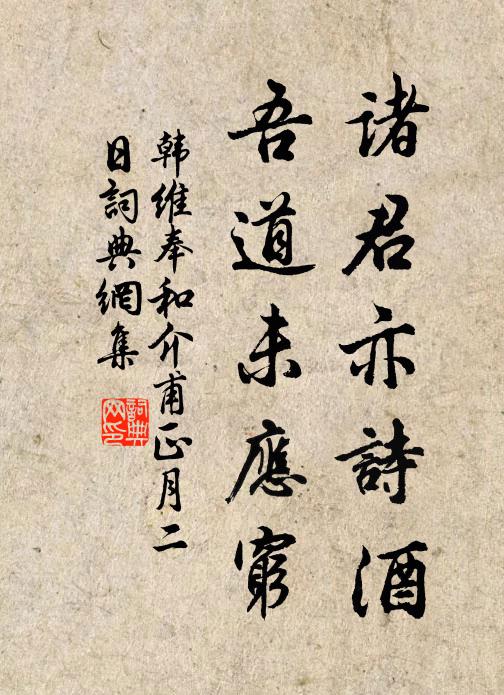 诸君亦詩酒
吾道未應窮
韩維奉和介甫正月二
日詞典網集
詞典
网印